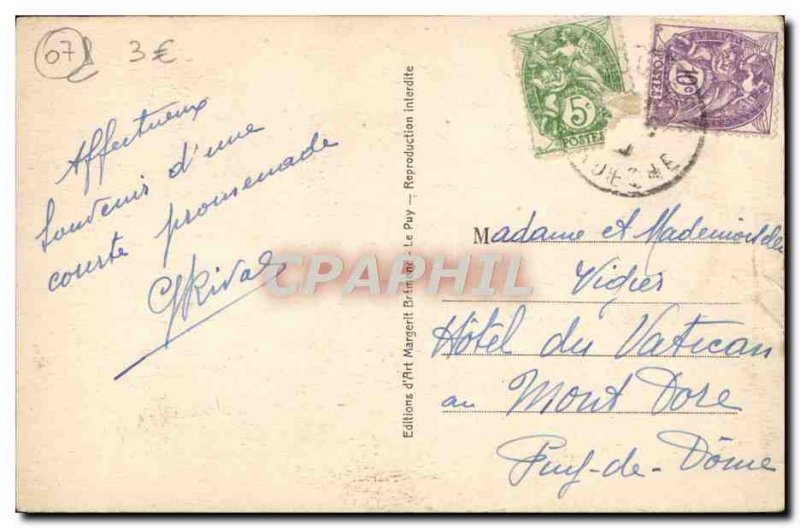 07
3€
Affectueux
souvenir d'une
courte promenade
GRival
CPARPHIL
Editions d'Art Margerit Brémond - Le Puy — Reproduction interdite
5c
POSTES
10c
POSTES
Madame et Mademoiselle
Vigier
Hôtel du Vatican
au Mont Dore
Puy-de-Dôme